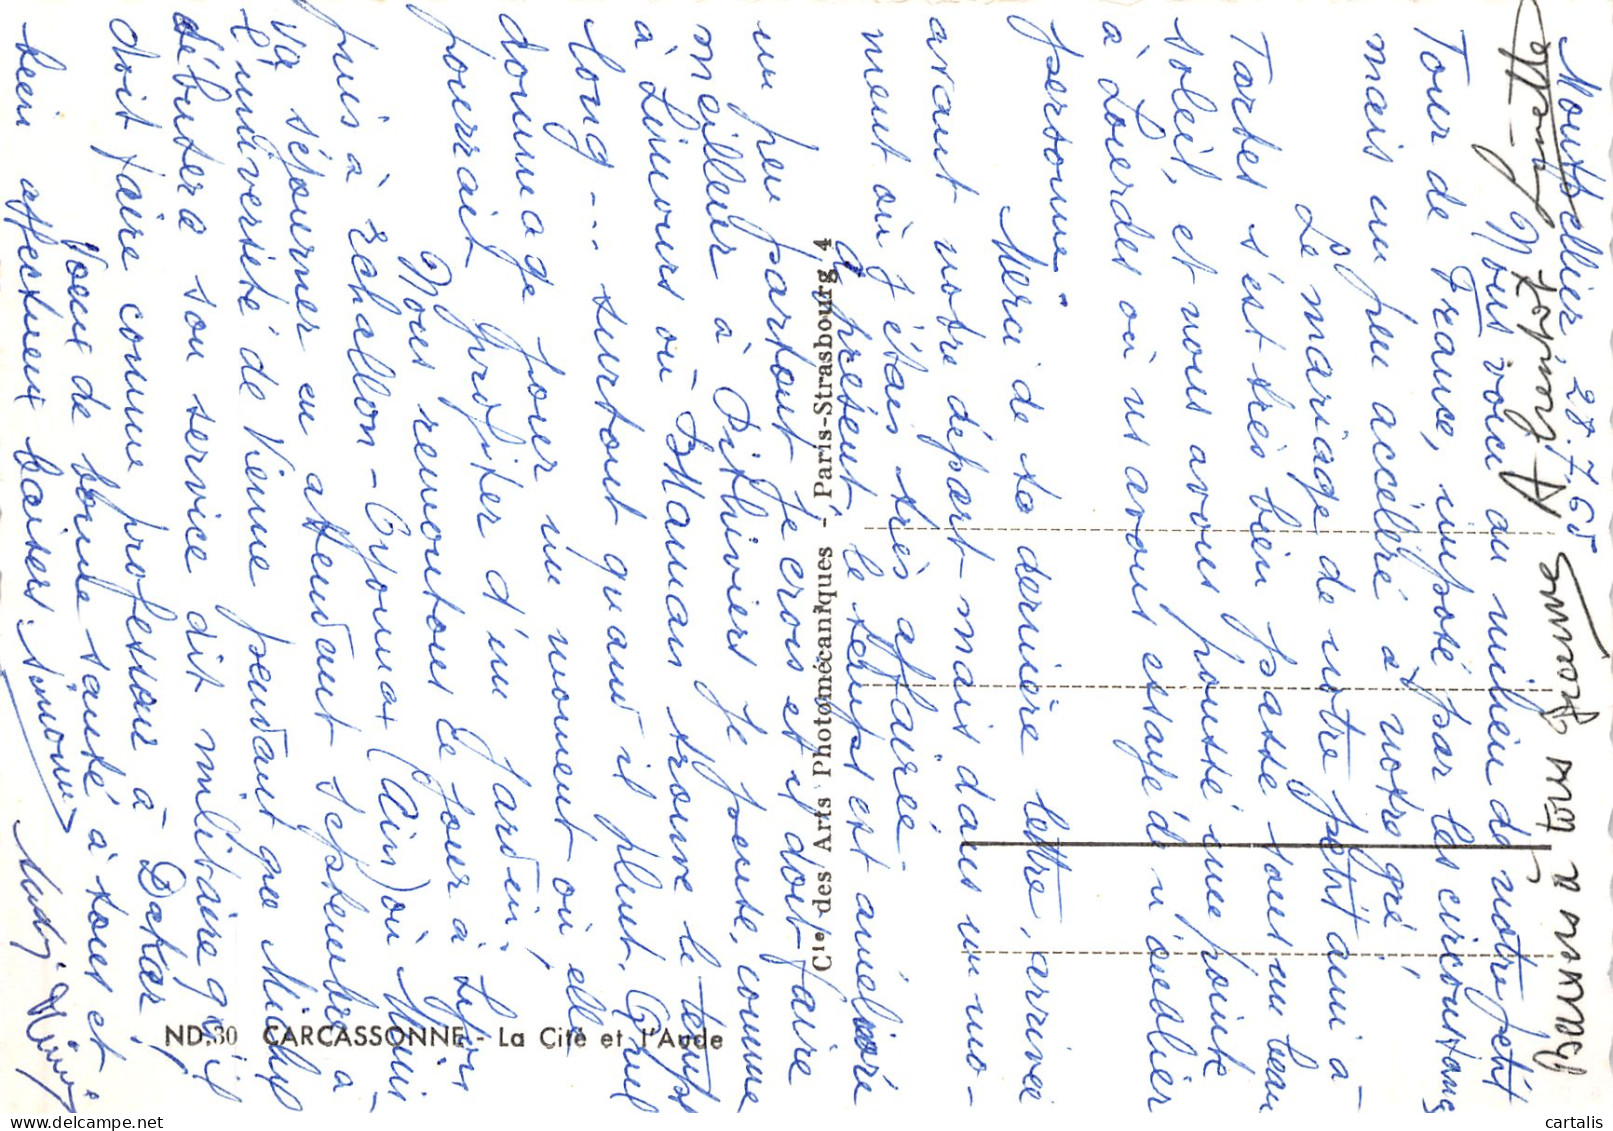 Montpellier, 28.7.65
Nous voici au milieu de notre petit
Tour de France, imposé par les circonstances
mais un peu accéléré à notre gré!
Le mariage de notre petit ami à
Tarbes s'est très bien passé sous un beau
soleil, et nous avons poussé une pointe
à Lourdes où ns avons essayé de n'oublier
personne.
Merci de ta dernière lettre, arrivée
avant notre départ mais dans un mo-
ment où j'étais très affairée.
à présent le temps est amélioré
un peu partout je crois et il doit faire
meilleur à Pithiviers je pense, comme
à Limours où Maman trouve le temps
long... surtout quand il pleut. Quel
dommage pour un moment où elle
pourrait profiter d'un jardin,
Nous remontons ce jour à Lyon
puis à Echallon - Oyonnax (Ain) où Mimi
va séjourner en attendant septembre à
l'université de Vienne pendant que Michel
débutera son service dit militaire qu'il
doit faire comme professeur à Dakar,
Voeux de bonne santé à tous et
bien affectueux baisers. Simone
Mimi
Baisers à tous
ND.30 CARCASSONNE - La Cité et l'Aude
Cie des Arts Photomécaniques - Paris-Strasbourg 4
cartalis